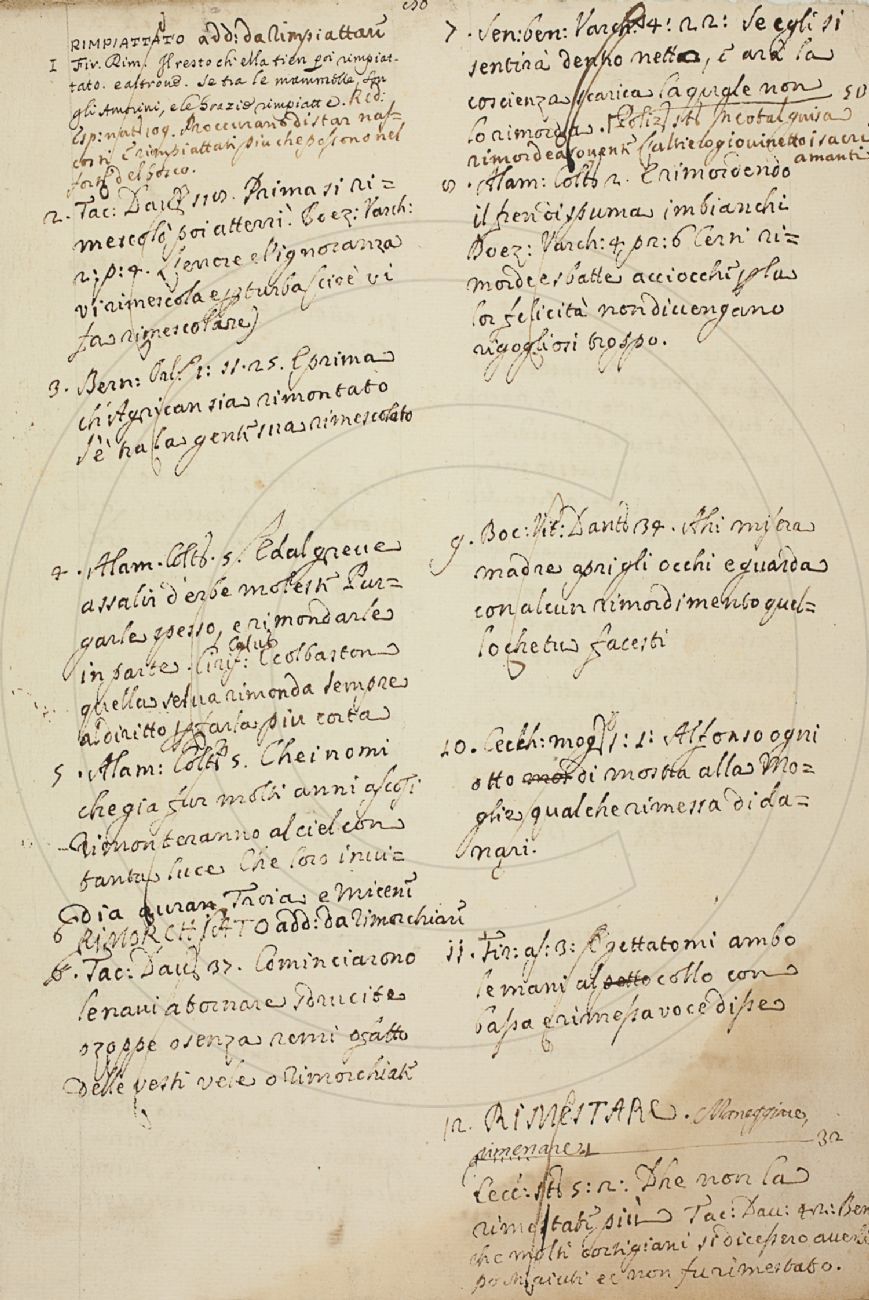 RIMPIATTATO add: da Rimpiattare
1 Fir. Rim. Il resto ch'ella tien poi rimpiat-
tato. e altrove. Se tra le mammelle, fu
gli Amorini, e le Grazie rimpiatte. Red:
Esp: nat: 109. Proccurano di star nas-
cosi E rimpiattati piu che possono nel
del bosco.
2. Tac: Dav: 118. Prima si ri=
mescolò, poi atterrì. Boez: Varch:
2: p: 4. L'errore e l'ignoranza
vi rimescola e perturba (cioè vi
fa rimescolare)
3. Bern: Orl: 1: 11. 25. E prima
ch'Agrican sia rimontato
S'è tra la gente sua rimescolato
4. Alam. Colt: 5. E dal greve
assalir d'erbe moleste Pur=
garle spesso, e rimondarle
in parte. Cirif: Calv: E col baston
quella selva rimonda sempre
al diritto per farla piu corta
5. Alam: Colt: 5. Che i nomi
che gia fur molti anni ascosi
Rimonteranno al ciel con
tanta luce Che loro invi=
dia avran Troia e Micene
6 RIMORCHIATO add: da rimorchiare
Tac: Dav: 37. Cominciarono
le navi a tornare sdrucite
o zoppe o senza remi o fatto
delle vesti vele o rimorchiate
7. Sen: ben: Varch: 4: 22: Se egli si
sentirà dentro netto, e arà la
coscienza scarica la quale non 50
lo rimorda. Poliz: st: In cotal guisa
rimordea sovente l'altier giovinetto i sacri
amanti
8. Alam: Colt: 2. E rimordendo
il fren di spuma imbianchi
Boez: Varch: 4 p2: 6 Certi ri=
morde e sbatte acciocchè per la
lor felicità non divengano
rigogliosi troppo.
9. Boc: Vit: Dant: 34. Ahi misera
madre apri gli occhi e guarda
con alcun rimordimento quel=
lo che tu facesti
10. Cecch: mogl: 1: 1: Alfonso ogni
otto di mostra alla Mo=
glie qualche rimessa di da=
nari.
11. Fir: as: 3: E gettatomi ambo
le mani al petto collo con
bassa e rimessa voce disse
12. RIMESTARE. Maneggiare,
rimenare 32
5: 2: Dhe non la
rimestate più Tac: Dav: Ben
che molti cortigiani si dicessero averli
aiuti e non fu rimestato.